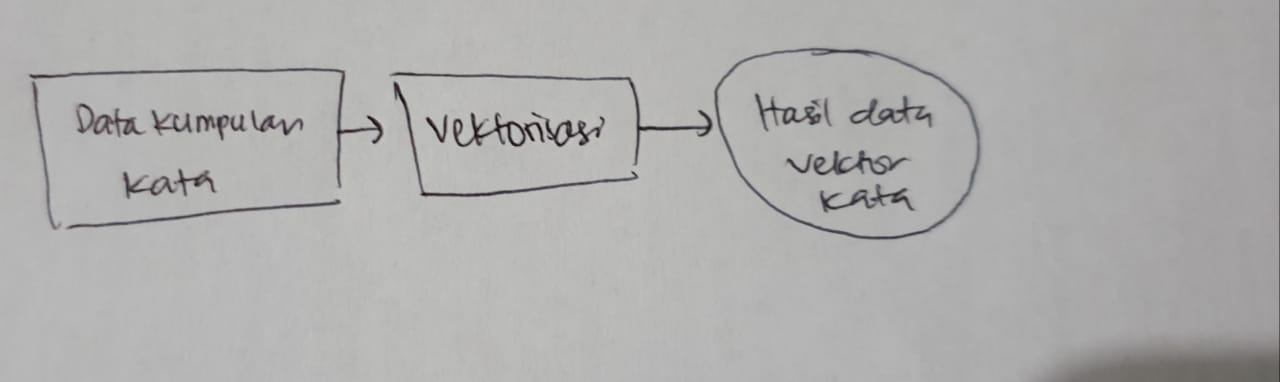 Data kumpulan
kata
Vektorisasi
Hasil data
vektor
kata